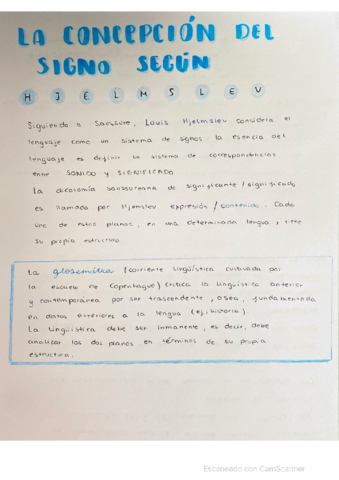 LA CONCEPCIÓN DEL
SIGNO SEGÚN
HJELMSLEV
Siguiendo a Saussure, Louis Hjelmslev considera el
lenguaje como un sistema de signos: la esencia del
lenguaje es definir un sistema de correspondencias
entre SONIDO y SIGNIFICADO
La dicotomía saussureana de significante/significado
es llamada por Hjemslev expresión/contenido. Cada
uno de estos planos, en una determinada lengua, tiene
su propia estructura
La glosemática (corriente lingüística cultivada por
la escuela de Copenhague) critica la lingüística anterior
y contemporánea por ser trascendente, o sea, fundamentada
en datos exteriores a la lengua (ej: historia).
La Lingüística debe ser inmanente, es decir, debe
analizar los dos planos en términos de su propia
estructura.
Escaneado con CamScanner